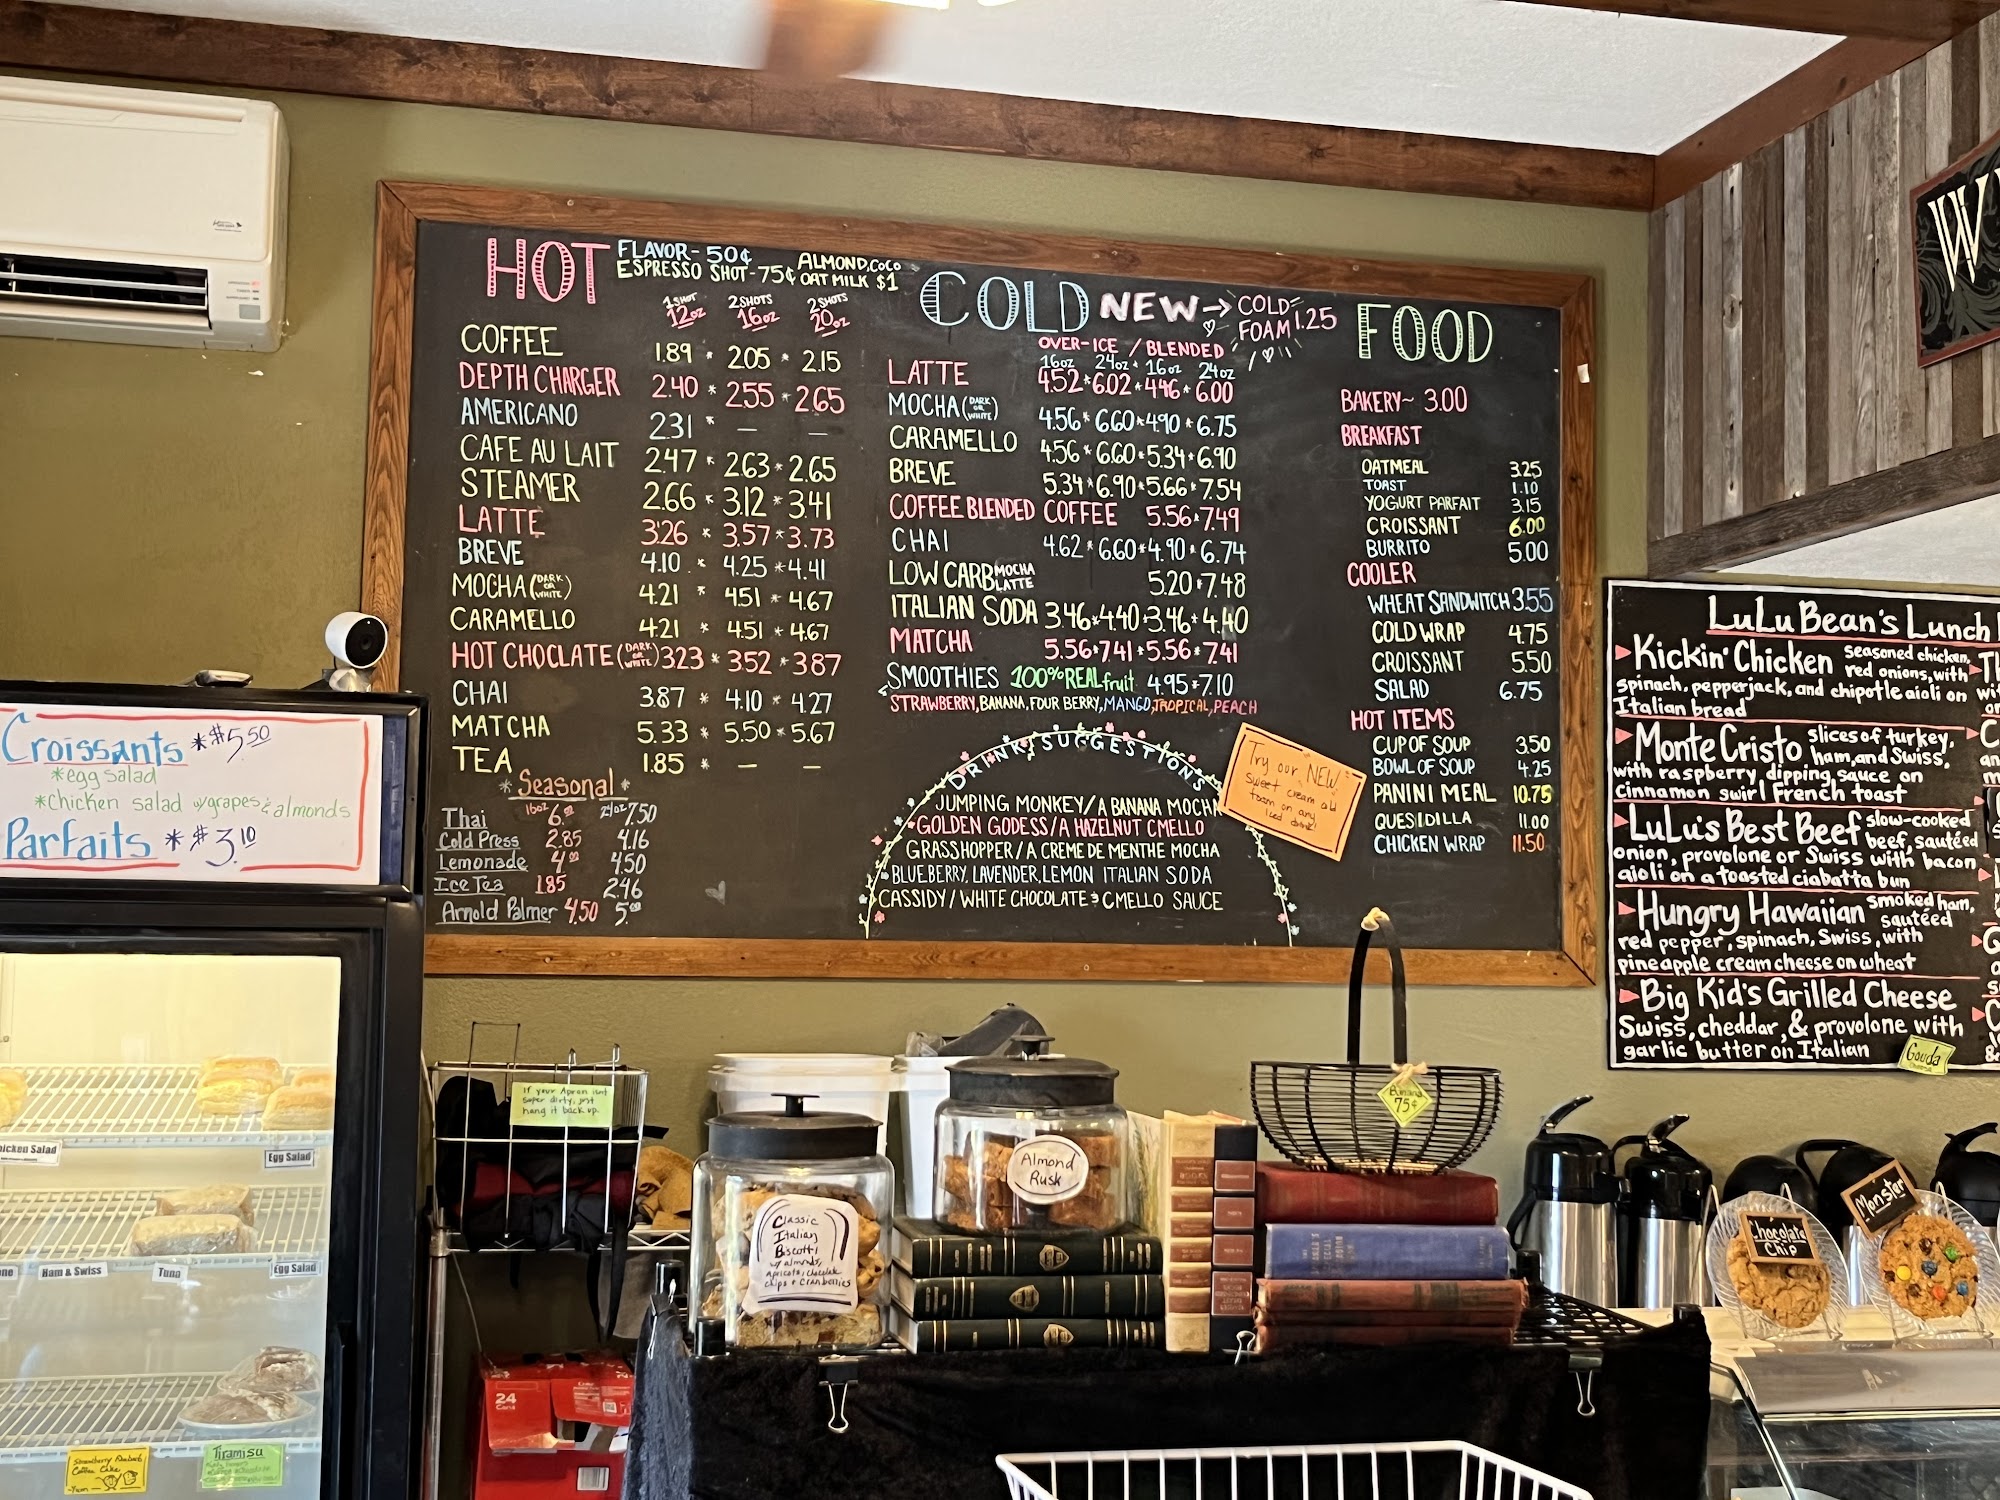 HOT
FLAVOR - 50¢
ESPRESSO SHOT - 75¢
ALMOND, COCO
OAT MILK $1
1 SHOT 2 SHOTS 2 SHOTS
12oz 16oz 20oz
COFFEE 1.89 * 2.05 * 2.15
DEPTH CHARGER 2.40 * 2.55 * 2.65
AMERICANO 2.31 * — —
CAFE AU LAIT 2.47 * 2.63 * 2.65
STEAMER 2.66 * 3.12 * 3.41
LATTE 3.26 * 3.57 * 3.73
BREVE 4.10 * 4.25 * 4.41
MOCHA (DARK OR WHITE) 4.21 * 4.51 * 4.67
CARAMELLO 4.21 * 4.51 * 4.67
HOT CHOCLATE (DARK OR WHITE) 323 * 352 * 387
CHAI 3.87 * 4.10 * 4.27
MATCHA 5.33 * 5.50 * 5.67
TEA 1.85 * — —
* Seasonal *
16oz 24oz
Thai 6.00 7.50
Cold Press 2.85 4.16
Lemonade 4.00 4.50
Ice Tea 1.85 2.46
Arnold Palmer 4.50 5.00
COLD
NEW → COLD FOAM 1.25
OVER-ICE / BLENDED
16oz 24oz * 16oz 24oz
LATTE 4.52 * 6.02 * 4.46 * 6.00
MOCHA (DARK OR WHITE) 4.56 * 6.60 * 4.90 * 6.75
CARAMELLO 4.56 * 6.60 * 5.34 * 6.90
BREVE 5.34 * 6.90 * 5.66 * 7.54
COFFEE BLENDED COFFEE 5.56 * 7.49
CHAI 4.62 * 6.60 * 4.90 * 6.74
LOW CARB MOCHA LATTE 5.20 * 7.48
ITALIAN SODA 3.46 * 4.40 * 3.46 * 4.40
MATCHA 5.56 * 7.41 * 5.56 * 7.41
SMOOTHIES 100% REAL fruit 4.95 * 7.10
STRAWBERRY, BANANA, FOUR BERRY, MANGO, TROPICAL, PEACH
DRINK SUGGESTIONS
JUMPING MONKEY/A BANANA MOCHA
GOLDEN GODESS/A HAZELNUT CMELLO
GRASSHOPPER/A CREME DE MENTHE MOCHA
BLUEBERRY, LAVENDER, LEMON ITALIAN SODA
CASSIDY/WHITE CHOCOLATE & CMELLO SAUCE
Try our NEW
sweet cream cold
foam on any
iced drink!
FOOD
BAKERY~ 3.00
BREAKFAST
OATMEAL 3.25
TOAST 1.10
YOGURT PARFAIT 3.15
CROISSANT 6.00
BURRITO 5.00
COOLER
WHEAT SANDWITCH 3.55
COLD WRAP 4.75
CROISSANT 5.50
SALAD 6.75
HOT ITEMS
CUP OF SOUP 3.50
BOWL OF SOUP 4.25
PANINI MEAL 10.75
QUESIDILLA 11.00
CHICKEN WRAP 11.50
W
LuLu Bean's Lunch
Kickin' Chicken seasoned chicken,
red onions, with
spinach, pepperjack, and chipotle aioli on
Italian bread
Monte Cristo slices of turkey,
ham, and Swiss,
with raspberry dipping sauce on
cinnamon swirl French toast
LuLu's Best Beef slow-cooked
beef, sautéed
onion, provolone or Swiss with bacon
aioli on a toasted ciabatta bun
Hungry Hawaiian smoked ham,
sautéed
red pepper, spinach, Swiss, with
pineapple cream cheese on wheat
Big Kid's Grilled Cheese
Swiss, cheddar, & provolone with
garlic butter on Italian
Gouda
Croissants *$5.50
*egg salad
*chicken salad w/grapes & almonds
Parfaits *$3.10
icken Salad
Egg Salad
Ham & Swiss
Tuna
Egg Salad
Strawberry Rhubarb
Coffee Cake
-Yum-
Tiramisu
If your Apron isnt
super dirty, just
hang it back up.
24
Classic
Italian
Biscotti
w/ almonds,
Apricots, chocolate
chips & Cranberries
Almond
Rusk
Banana
75¢
Chocolate
Chip
Monster